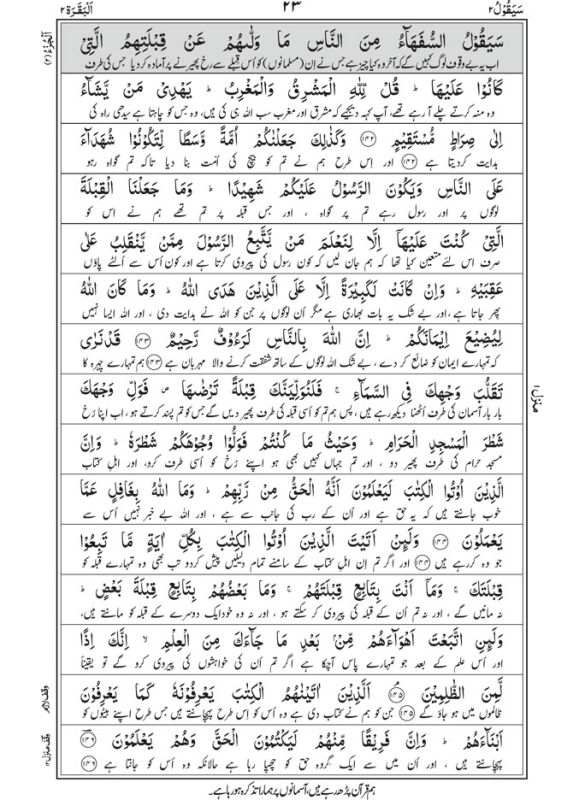 سَيَقُوْلُ ٢
٢٣
اَلْبَقَرَة ٢
اَلْجُزْءُ (٢)
سَيَقُوْلُ السُّفَهَآءُ مِنَ النَّاسِ مَا وَلّٰىهُمْ عَنْ قِبْلَتِهِمُ الَّتِيْ
اب یہ بے وقوف لوگ کہیں گے کہ آخر وہ کیا چیز ہے جس نے ان (مسلمانوں) کو اُس قبلے سے رخ پھیرنے پر آمادہ کر دیا جس کی طرف
كَانُوْا عَلَيْهَا ؕ قُلْ لِّلّٰهِ الْمَشْرِقُ وَالْمَغْرِبُ ؕ يَهْدِيْ مَنْ يَّشَآءُ
وہ منہ کرتے چلے آرہے تھے، آپ کہہ دیجئے کہ مشرق اور مغرب سب اللہ ہی کی ہیں، وہ جس کو چاہتا ہے سیدھی راہ کی
اِلٰى صِرَاطٍ مُّسْتَقِيْمٍ ﴿١٤٢﴾ وَكَذٰلِكَ جَعَلْنٰكُمْ اُمَّةً وَّسَطًا لِّتَكُوْنُوْا شُهَدَآءَ
ہدایت کر دیتا ہے ﴿١٤٢﴾ اور اسی طرح ہم نے تم کو بیچ کی اُمّت بنا دیا تاکہ تم گواہ رہو
عَلَى النَّاسِ وَيَكُوْنَ الرَّسُوْلُ عَلَيْكُمْ شَهِيْدًا ؕ وَمَا جَعَلْنَا الْقِبْلَةَ
لوگوں پر اور رسول رہے تم پر گواہ ، اور جس قبلہ پر تم تھے ہم نے اس کو
الَّتِيْ كُنْتَ عَلَيْهَآ اِلَّا لِنَعْلَمَ مَنْ يَّتَّبِعُ الرَّسُوْلَ مِمَّنْ يَّنْقَلِبُ عَلٰى
صرف اس لئے متعین کیا تھا کہ ہم جان لیں کہ کون رسول کی پیروی کرتا ہے اور کون اُس سے اُلٹے پاؤں
عَقِبَيْهِ ؕ وَاِنْ كَانَتْ لَكَبِيْرَةً اِلَّا عَلَى الَّذِيْنَ هَدَى اللّٰهُ ؕ وَمَا كَانَ اللّٰهُ
پھر جاتا ہے، اور بے شک یہ بات بھاری ہے مگر اُن لوگوں پر جن کو اللہ نے ہدایت دی، اور اللہ ایسا نہیں
لِيُضِيْعَ اِيْمَانَكُمْ ؕ اِنَّ اللّٰهَ بِالنَّاسِ لَرَءُوْفٌ رَّحِيْمٌ ﴿١٤٣﴾ قَدْ نَرٰى
کہ تمہارے ایمان کو ضائع کر دے، بے شک اللہ لوگوں کے ساتھ شفقت کرنے والا مہربان ہے ﴿١٤٣﴾ ہم تمہارے چہرہ کا
تَقَلُّبَ وَجْهِكَ فِي السَّمَآءِ ۚ فَلَنُوَلِّيَنَّكَ قِبْلَةً تَرْضٰىهَا ۪ فَوَلِّ وَجْهَكَ
بار بار آسمان کی طرف اُٹھنا دیکھ رہے ہیں، پس ہم تم کو اُسی قبلہ کی طرف پھیر دیں گے جس کو تم پسند کرتے ہو، اب اپنا رُخ
شَطْرَ الْمَسْجِدِ الْحَرَامِ ؕ وَحَيْثُ مَا كُنْتُمْ فَوَلُّوْا وُجُوْهَكُمْ شَطْرَهٗ ؕ وَاِنَّ
مسجد حرام کی طرف پھیر دو ، اور تم جہاں کہیں بھی ہو اپنے رُخ کو اُسی طرف کرو، اور اہل کتاب
الَّذِيْنَ اُوْتُوا الْكِتٰبَ لَيَعْلَمُوْنَ اَنَّهُ الْحَقُّ مِنْ رَّبِّهِمْ ؕ وَمَا اللّٰهُ بِغَافِلٍ عَمَّا
خوب جانتے ہیں کہ یہ حق ہے اور اُن کے رب کی جانب سے ہے ، اور اللہ بے خبر نہیں اُس سے
يَعْمَلُوْنَ ﴿١٤٤﴾ وَلَئِنْ اَتَيْتَ الَّذِيْنَ اُوْتُوا الْكِتٰبَ بِكُلِّ اٰيَةٍ مَّا تَبِعُوْا
جو وہ کر رہے ہیں ﴿١٤٤﴾ اور اگر تم اِن اہل کتاب کے سامنے تمام دلیلیں پیش کر دو تب بھی وہ تمہارے قبلہ کو
قِبْلَتَكَ ۚ وَمَآ اَنْتَ بِتَابِعٍ قِبْلَتَهُمْ ۚ وَمَا بَعْضُهُمْ بِتَابِعٍ قِبْلَةَ بَعْضٍ ؕ
نہ مانیں گے ، اور نہ تم اُن کے قبلہ کی پیروی کر سکتے ہو ، اور نہ وہ خود ایک دوسرے کے قبلہ کو مانتے ہیں،
وَلَئِنِ اتَّبَعْتَ اَهْوَآءَهُمْ مِّنْۢ بَعْدِ مَا جَآءَكَ مِنَ الْعِلْمِ ۙ اِنَّكَ اِذًا
اور اُس علم کے بعد جو تمہارے پاس آچکا ہے اگر تم اُن کی خواہشوں کی پیروی کرو گے تو یقیناً
لَّمِنَ الظّٰلِمِيْنَ ﴿١٤٥﴾ اَلَّذِيْنَ اٰتَيْنٰهُمُ الْكِتٰبَ يَعْرِفُوْنَهٗ كَمَا يَعْرِفُوْنَ
ظالموں میں ہو جاؤ گے ﴿١٤٥﴾ جن کو ہم نے کتاب دی ہے وہ اُس کو اِس طرح پہچانتے ہیں جس طرح اپنے بیٹوں کو
اَبْنَآءَهُمْ ؕ وَاِنَّ فَرِيْقًا مِّنْهُمْ لَيَكْتُمُوْنَ الْحَقَّ وَهُمْ يَعْلَمُوْنَ ﴿١٤٦﴾
پہچانتے ہیں ، اور اُن میں سے ایک گروہ حق کو چھپا رہا ہے حالانکہ وہ اُس کو جانتا ہے ﴿١٤٦﴾
منزل ١
وقف لازم
ہم قرآن پڑھ رہے ہیں، آسمانوں پر ہمارا تذکرہ ہو رہا ہے۔